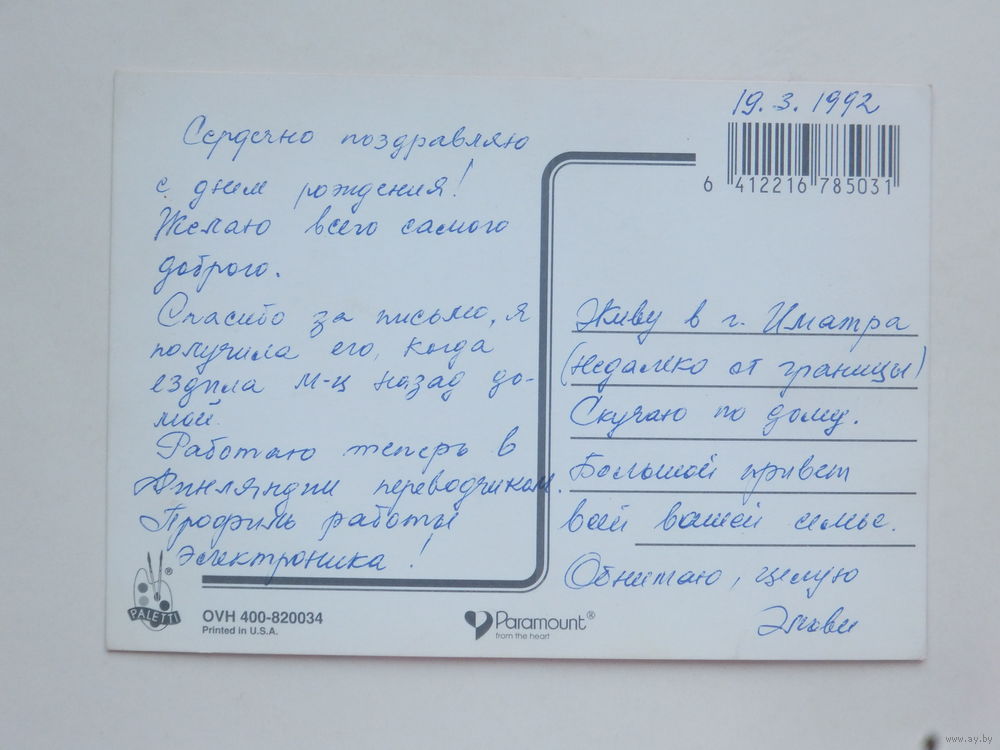 19.3.1992
Сердечно поздравляю
с днем рождения!
Желаю всего самого
доброго.
Спасибо за письмо, я
получила его, когда
ездила м-ц назад до-
мой.
Работаю теперь в
Финляндии переводчиком.
Профиль работы
Электроника!
6 412216 785031
Живу в г. Иматра
(недалеко от границы)
Скучаю по дому.
Большой привет
всей вашей семье.
Обнимаю, целую
PALETTI ®
OVH 400-820034
Printed in U.S.A.
Paramount®
from the heart
www.ay.by